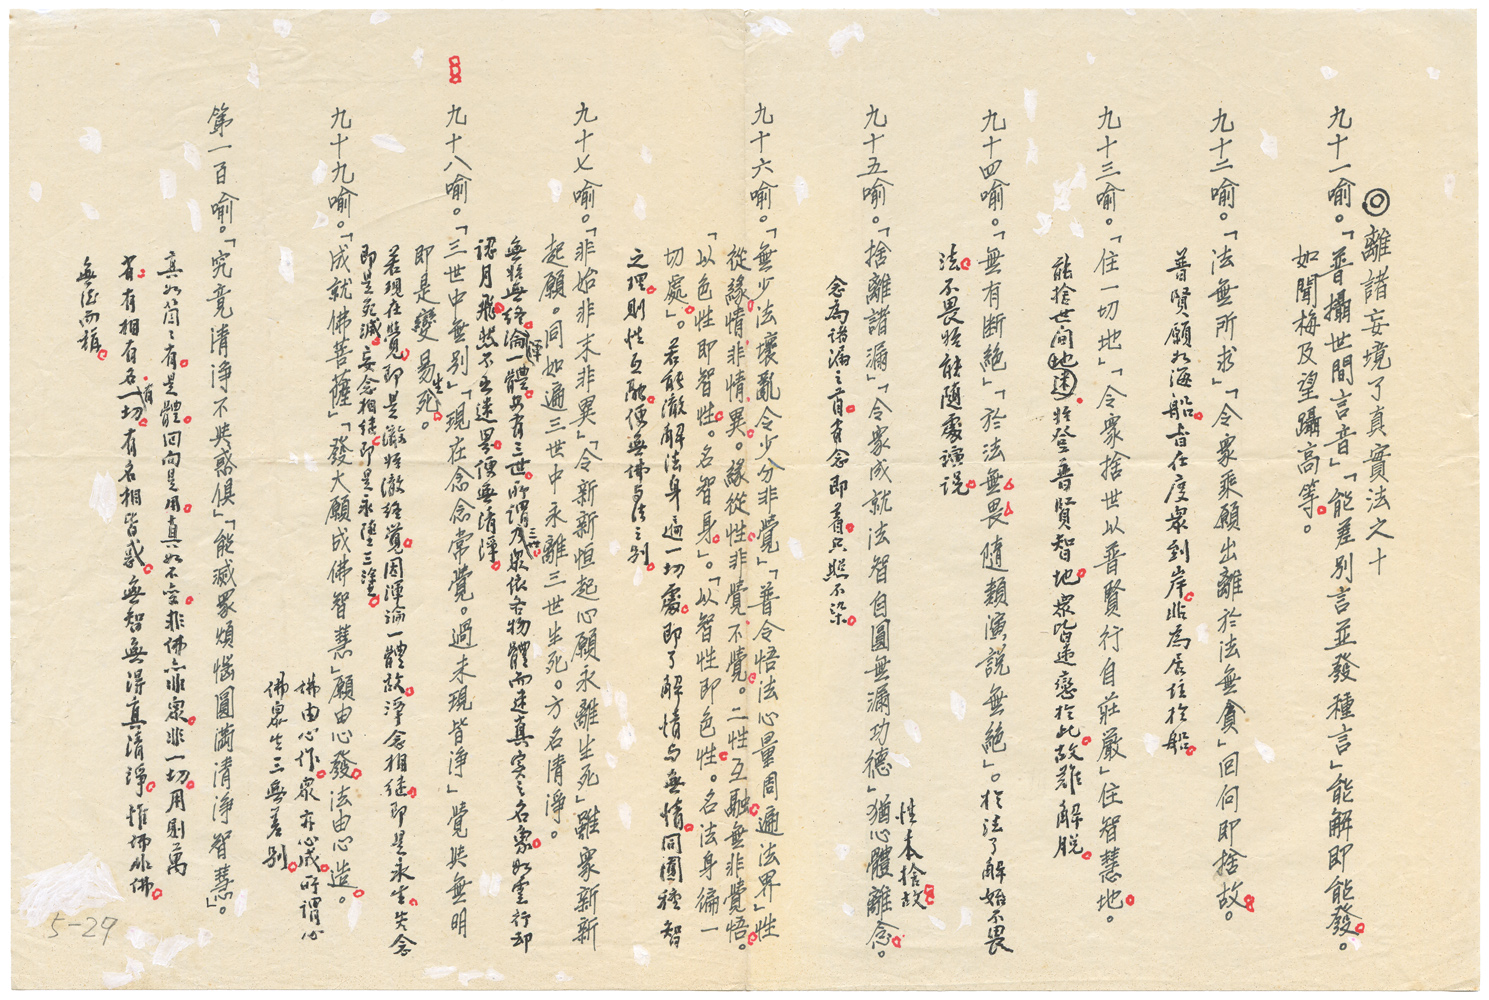 ◎離諸妄境了真實法之十
九十一喻。「普攝世間言音」「能差別言並發種言」能解即能發。
如聞梅及望躡高等。
九十二喻。「法無所求」「令眾乘願出離於法無貪」回向即捨故。
普賢願如海船。旨在度眾到岸。非為居住於船。
九十三喻。「住一切地」「令眾捨世以普賢行自莊嚴」住智慧地。
能捨世間地迷。性登普賢智地。眾皆迷戀於此。故難解脫。
九十四喻。「無有断絕」「於法無畏隨類演說無絕」。於法了解始不畏
法。不畏性能隨處演說。
九十五喻。「捨離諸漏」「令眾成就法智自圓無漏功德」猶心體離念。
性本捨故
念為諸漏之首。有念即着。只照不染。
九十六喻。「無少法壞亂令少分非覺」「普令悟法心量周遍法界」性
從緣情非情異。緣從性非覺不覺。二性互融無非覺悟。
「以色性即智性。名智身」。「以智性即色性。名法身徧一
切處」。若能澈解法身遍一切處。即了解情与無情同圓種智
之理。則性互融。便無佛与法之別。
九十七喻。「非始非末非異」「令新新恒起心願永離生死」雖眾新新
起願。同如遍三世中永離三世生死。方名清淨。
無始無終。淪一體。安有三世。所謂三世乃眾依各物體而迷真实之名象。如雲行却
認月飛。然不去迷異。便無清淨。
九十八喻。「三世中無別」「現在念念常覺。過未現皆淨」覺與無明
即是變易生死。
若現在覺。即是澈悟澈終覺。因渾淪一體故。淨念相継。即是永生。失念
即是死滅。妄念相継。即是永墮三塗。
九十九喻。「成就佛菩薩」「發大願成佛智慧」願由心發。法由心造。
佛由心作。眾亦心成。所謂心
佛眾生三無差別。
第一百喻。「究竟清淨不與惑俱」「能滅眾煩惱圓満清淨智慧」。
真如簡之有。是體。回向是用。真如不空。非佛亦非眾。非一切。用則萬
有。有相有名有一切。有名相皆惑。無智無得真清淨。惟佛外佛。
無法而稱。
5-29